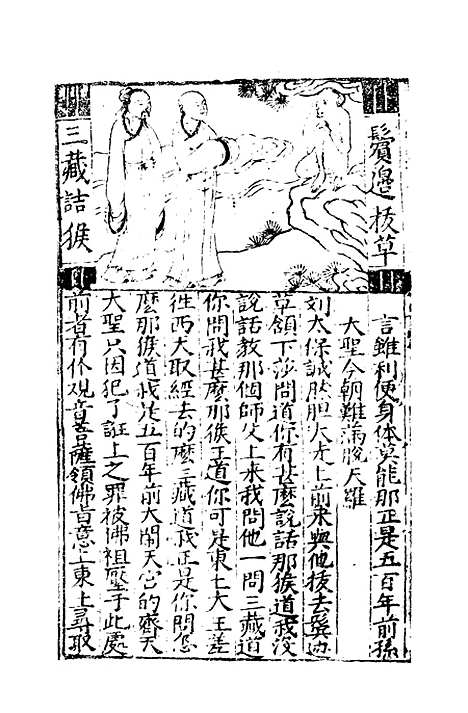 鬢邊拔草
三藏詰猴
言雖利便身体莫能那正是五百年前孫
大聖今朝難滿脫天羅
刘太保誠然胆大走上前來與他拔去鬢边
草領下莎問道你有甚麽說話那猴道我沒
說話教那個師父上來我問他一問三藏道
你問我甚麽那猴王道你可是東土大王差
徃西天取經去的麽三藏道我正是你問怎
麽那猴道我是五百年前大鬧天宮的齊天
大聖只因犯了誑上之罪被佛祖壓于此處
前者有个观音菩薩領佛旨意上東土尋取